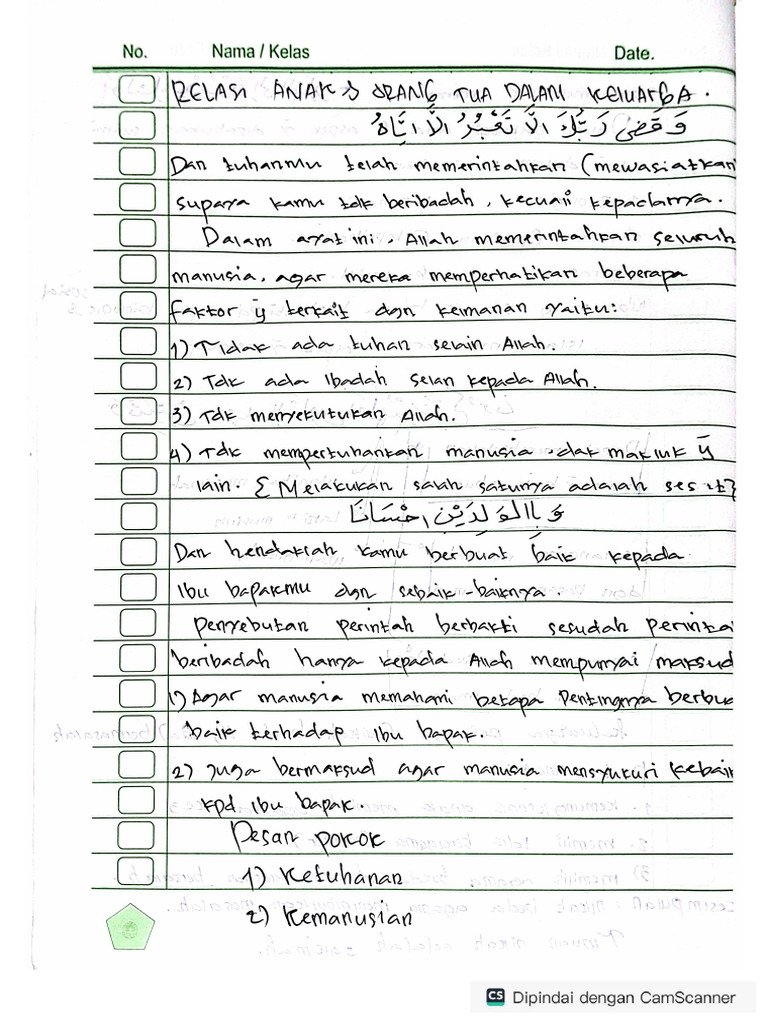 No. Nama / Kelas Date.
RELASI ANAK & ORANG TUA DALAM KELUARGA.
وَقَضَى رَبُّكَ اَلَّا تَعْبُدُ اِلَّا اِيَّاهُ
Dan tuhanmu telah memerintahkan (mewasiatkan
supaya kamu tdk beribadah, kecuali kepadanya.
Dalam ayat ini, Allah memerintahkan seluruh
manusia, agar mereka memperhatikan beberapa
faktor ȳ terkait dgn keimanan yaitu:
1) Tidak ada tuhan selain Allah.
2) Tdk ada Ibadah selan kepada Allah.
3) Tdk menyekutukan Allah.
4) Tdk mempertuhankan manusia dak makluk ȳ
lain. { Melakukan salah satunya adalah sesat}
وَبِالْوَلِدَيْنِ اِحْسَانَا
Dan hendaklah kamu berbuat baik kepada
Ibu bapakmu dgn sebaik-baiknya.
Penyebutan perintah berbakti sesudah perinta
beribadah hanya kepada Allah mempunyai maksud
1) Agar manusia memahami betapa pentingnya berbua
baik terhadap Ibu bapak.
2) Juga bermaksud agar manusia mensyukuri kebaik
kpd ibu bapak.
Pesan pokok
1) Ketuhanan
2) Kemanusian
CS Dipindai dengan CamScanner